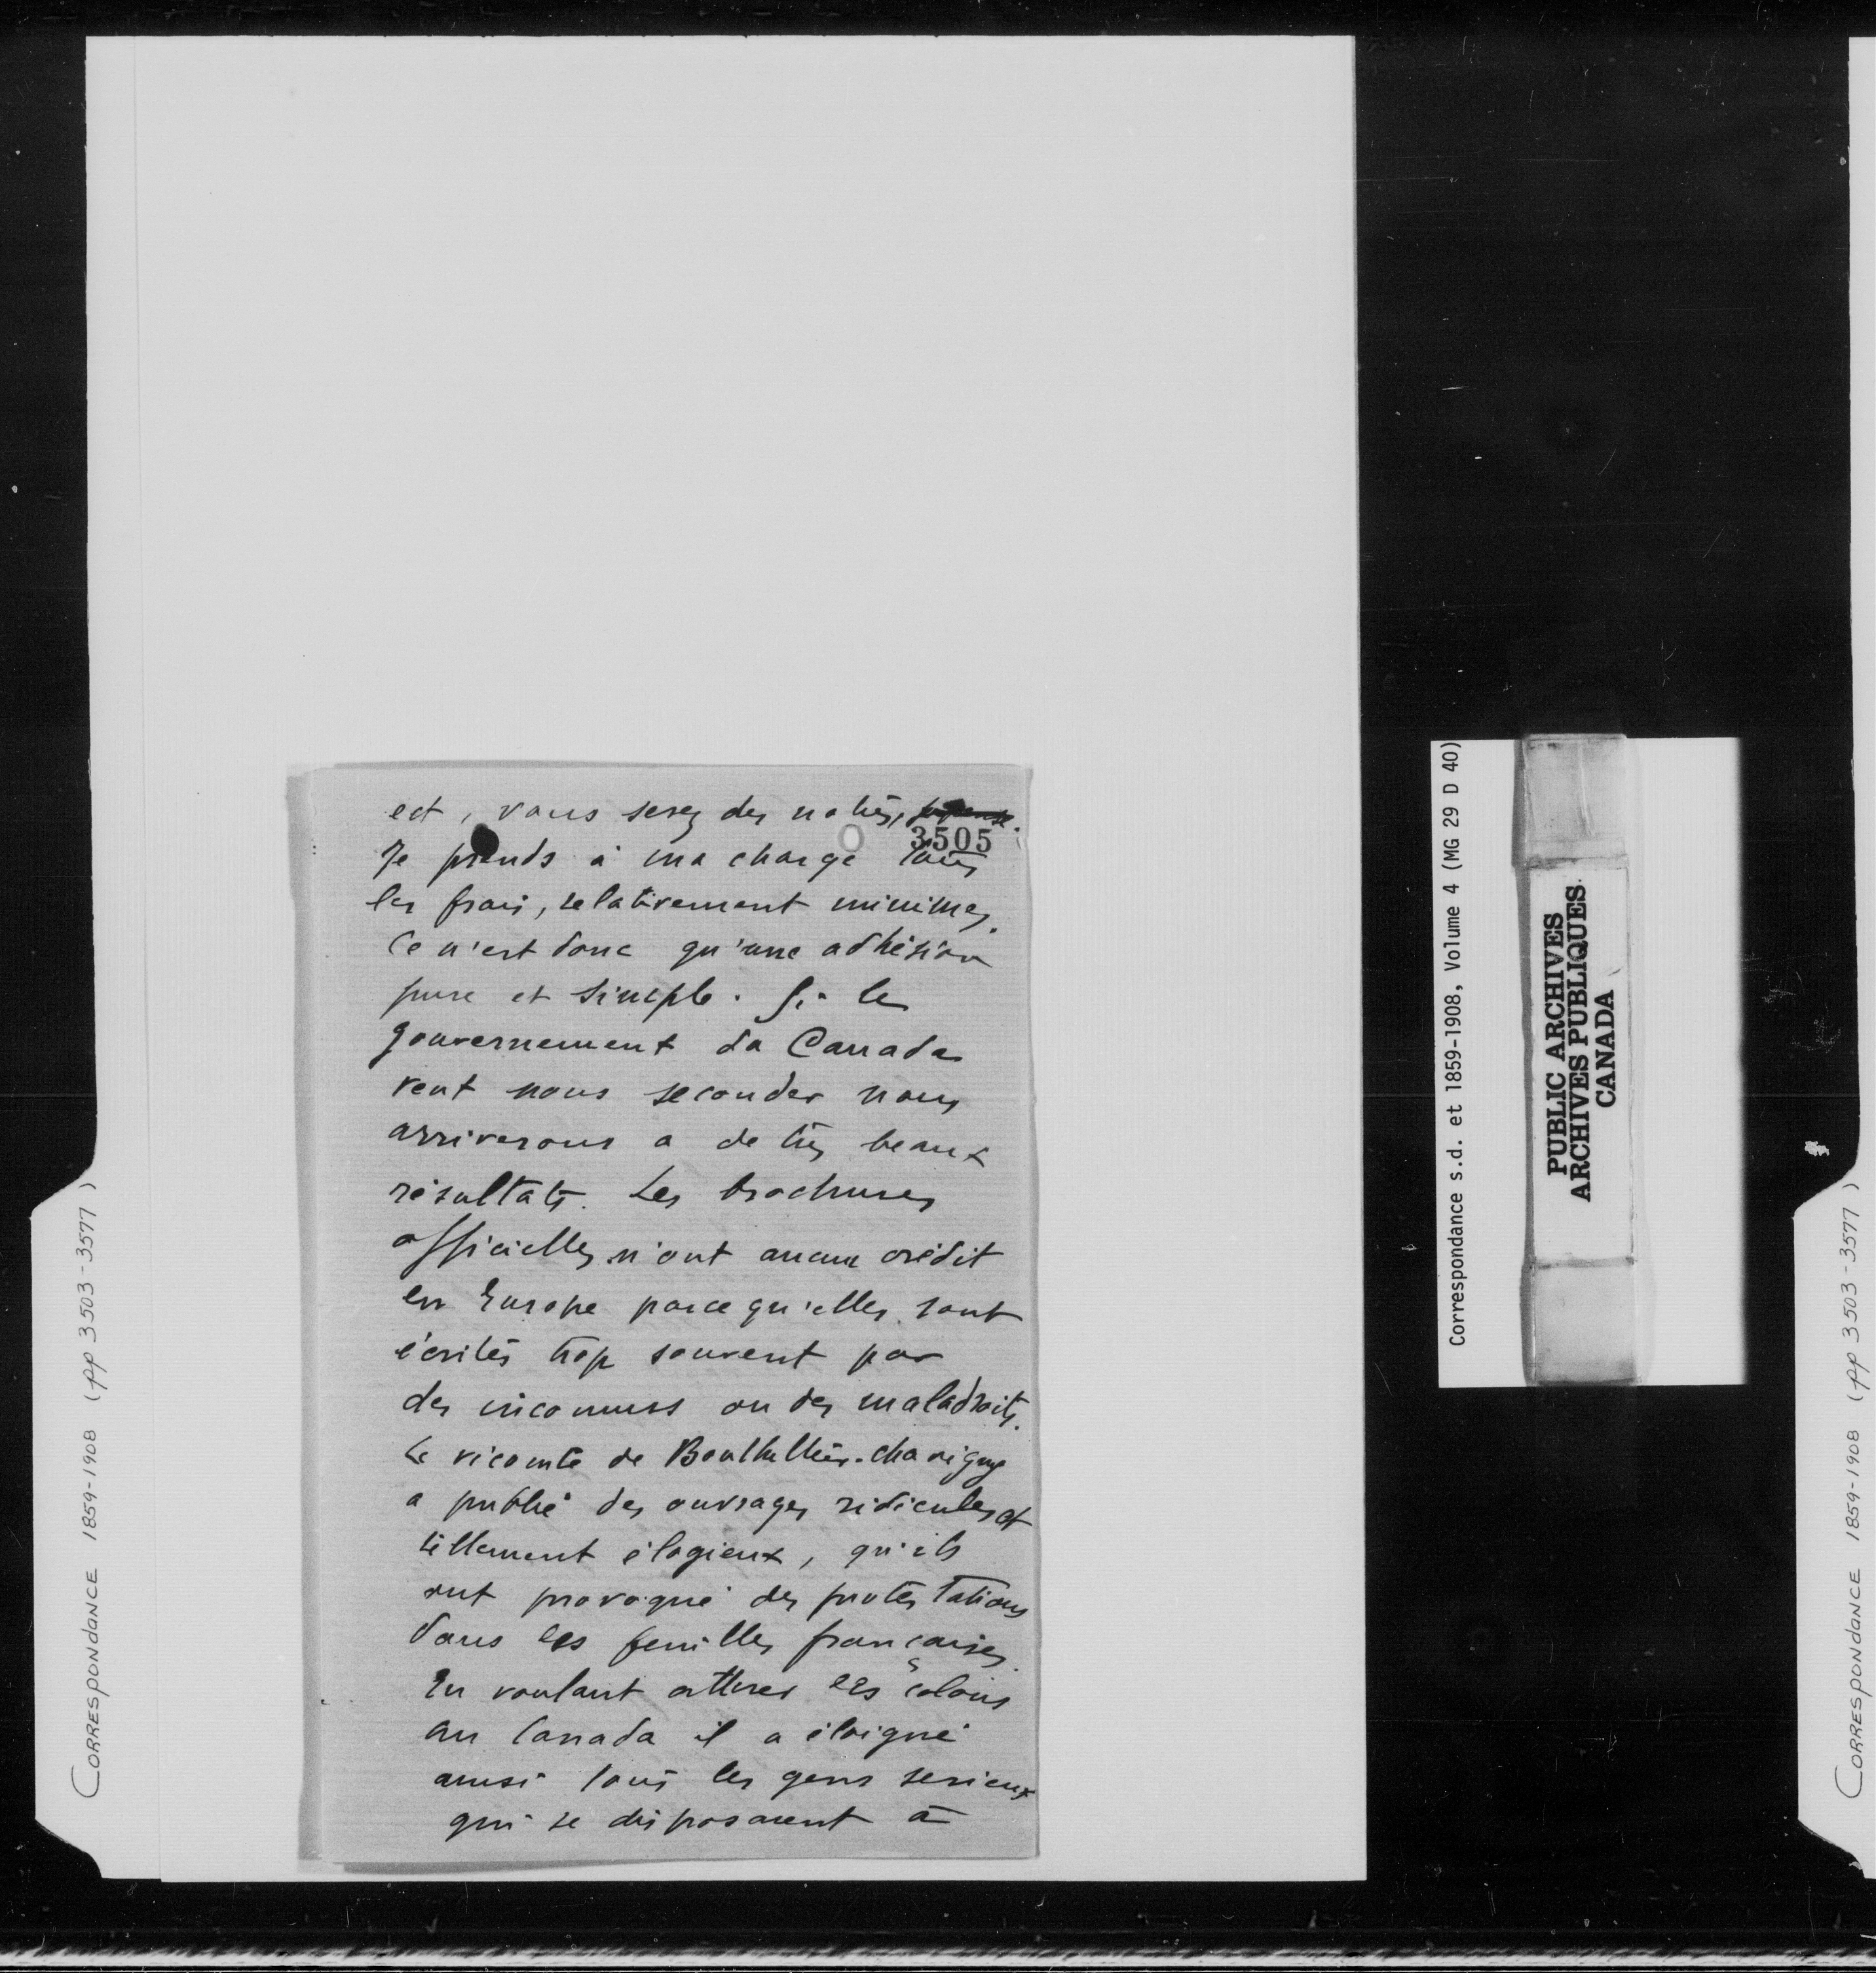 est, vous serez des nôtres, je pense.
3505
Je prends à ma charge tous
les frais, relativement minimes.
Ce n'est donc qu'une adhésion
pure et simple. Si le
gouvernement du Canada
veut nous seconder nous
arriverons a de très beaux
résultats. Les brochures
officielles n'ont aucun crédit
en Europe parce qu'elles sont
écrites trop souvent par
des inconnus ou des maladroits.
Le vicomte de Bouthillier-Chavigny
a publié des ouvrages ridicules et
tellement élogieux, qu'ils
ont provoqué des protestations
dans les feuilles françaises.
En voulant attirer les colons
au Canada il a éloigné
ainsi tous les gens serieux
qui se disposaient à
CORRESPONDANCE 1859-1908 (pp 3503-3577)
Correspondance s.d. et 1859-1908, Volume 4 (MG 29 D 40)
PUBLIC ARCHIVES
ARCHIVES PUBLIQUES
CANADA
CORRESPONDANCE 1859-1908 (pp 3503-3577)